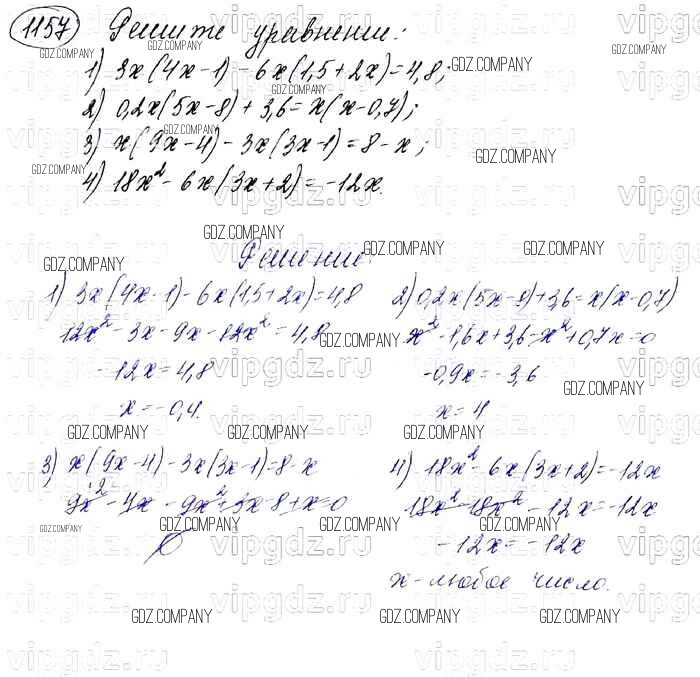 1157 Решите уравнения:
1) 3x(4x-1) - 6x(1,5+2x)=4,8;
2) 0,2x(5x-8) + 3,6= x(x-0,7);
3) x(9x-4) - 3x(3x-1)=8-x;
4) 18x² - 6x(3x+2)= -12x.
Решение:
1) 3x(4x-1)-6x(1,5+2x)=4,8
12x² - 3x - 9x - 12x² = 4,8
-12x = 4,8
x = -0,4.
2) 0,2x(5x-8)+3,6=x(x-0,7)
x² - 1,6x+3,6-x²+0,7x=0
-0,9x = -3,6
x = 4
3) x(9x-4)-3x(3x-1)=8-x
9x² - 4x - 9x²+3x-8+x=0
∅
4) 18x² - 6x(3x+2)=-12x
18x² - 18x² - 12x = -12x
-12x = -12x
x - любое число.
GDZ.COMPANY
vipgdz.ru